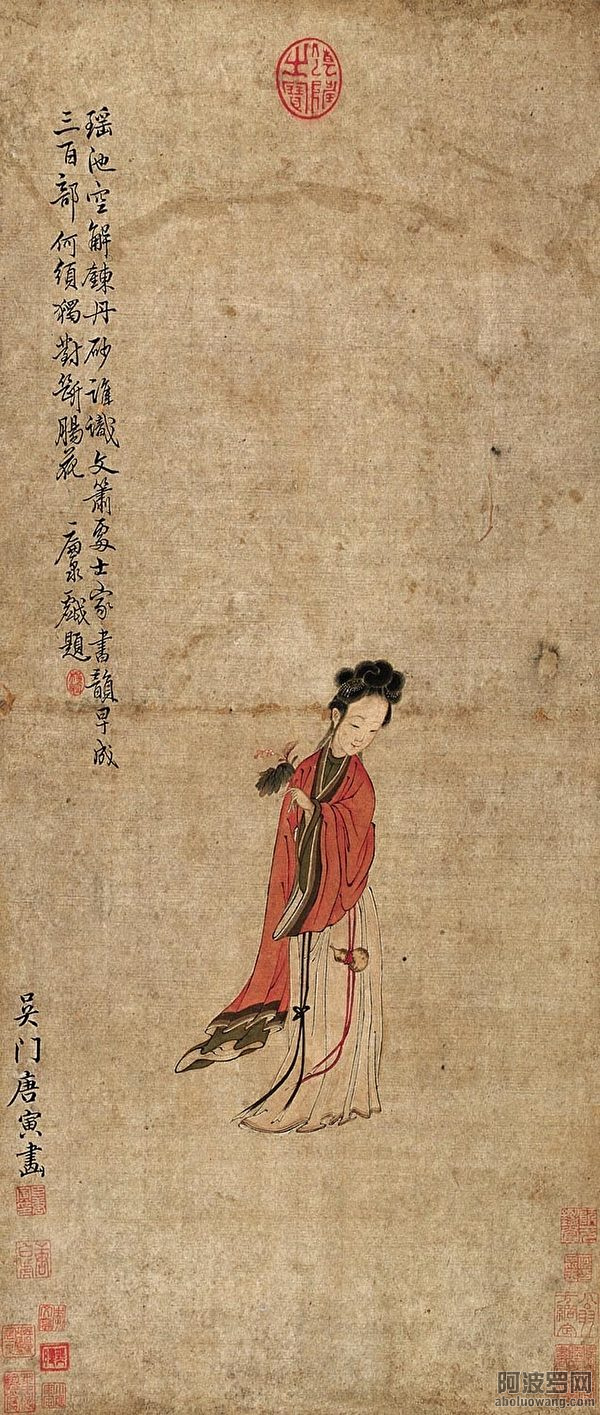 瑶池空解鍊丹砂誰識文簫處士家書韻早成
三百部何須獨對斷腸花 廉泉戲題
吴门唐寅畫
阿波罗网
aboluowang.com